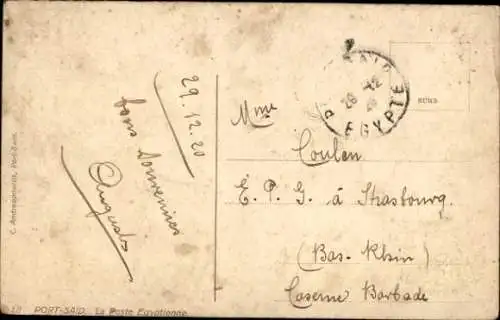 29.12.20
bons Souvenirs
Auguste
C. Andreopoulos, Port-Said.
PORT-SAID. La Poste Egyptienne
28 12
EGYPTE
Mme
Coulon
E. P. G. à Strasbourg.
(Bas-Rhin)
Caserne Barbade